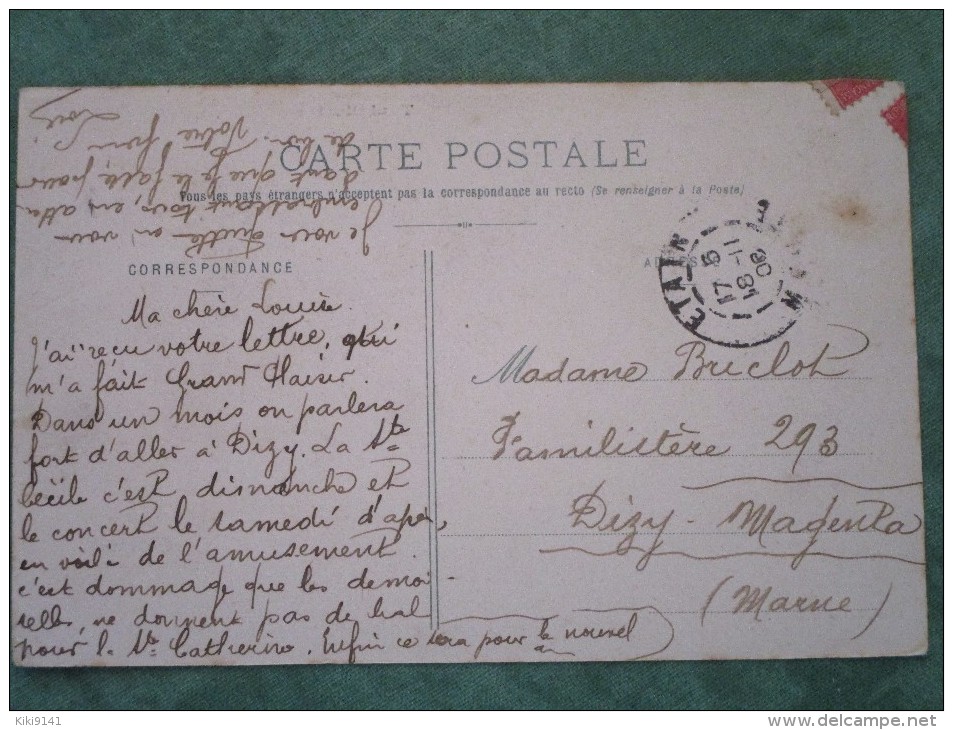 CARTE POSTALE
Tous les pays étrangers n'acceptent pas la correspondance au recto (Se renseigner à la Poste)
CORRESPONDANCE
Ma chère Louise
J'ai reçu votre lettre, qui
m'a fait Grand Plaisir.
Dans un mois on parlera
fort d'aller à Dizy. La Ste
Cécile c'est dimanche et
le concert le samedi d'après,
en voilà de l'amusement.
c'est dommage que les demoi
selles, ne donnent pas de bal
pour la Ste Catherine. Enfin ce sera pour le nouvel
an
Je vous quitte en vous
embrassant tous, en atten
dant que je le fasse pour
de bon. Votre
ETAIN
17-5
18-11
08
Madame Briclot
Familistère 293
Dizy-Magenta
(Marne)
Kiki9141
delcampe.net